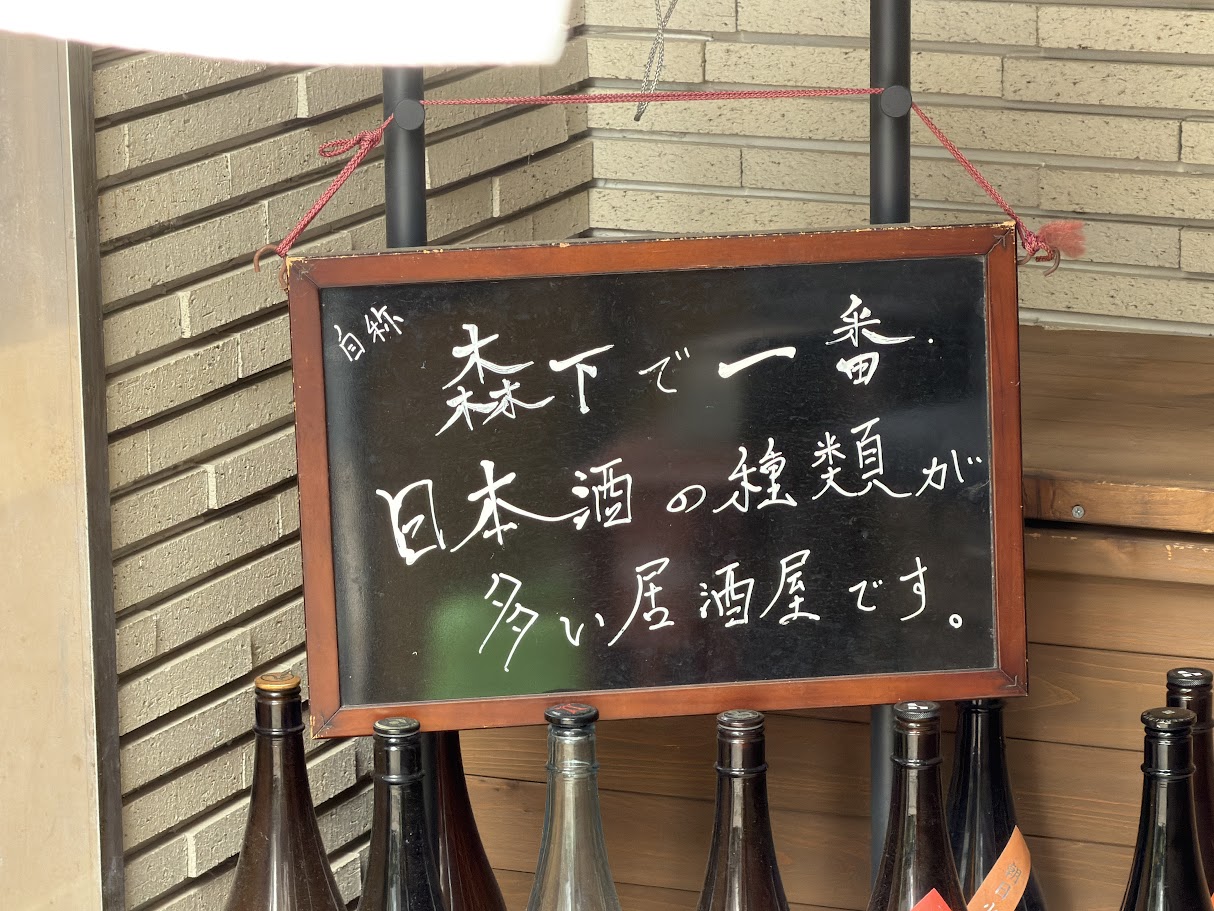 自称
森下で一番.
日本酒の種類が
多い居酒屋です。
朝日